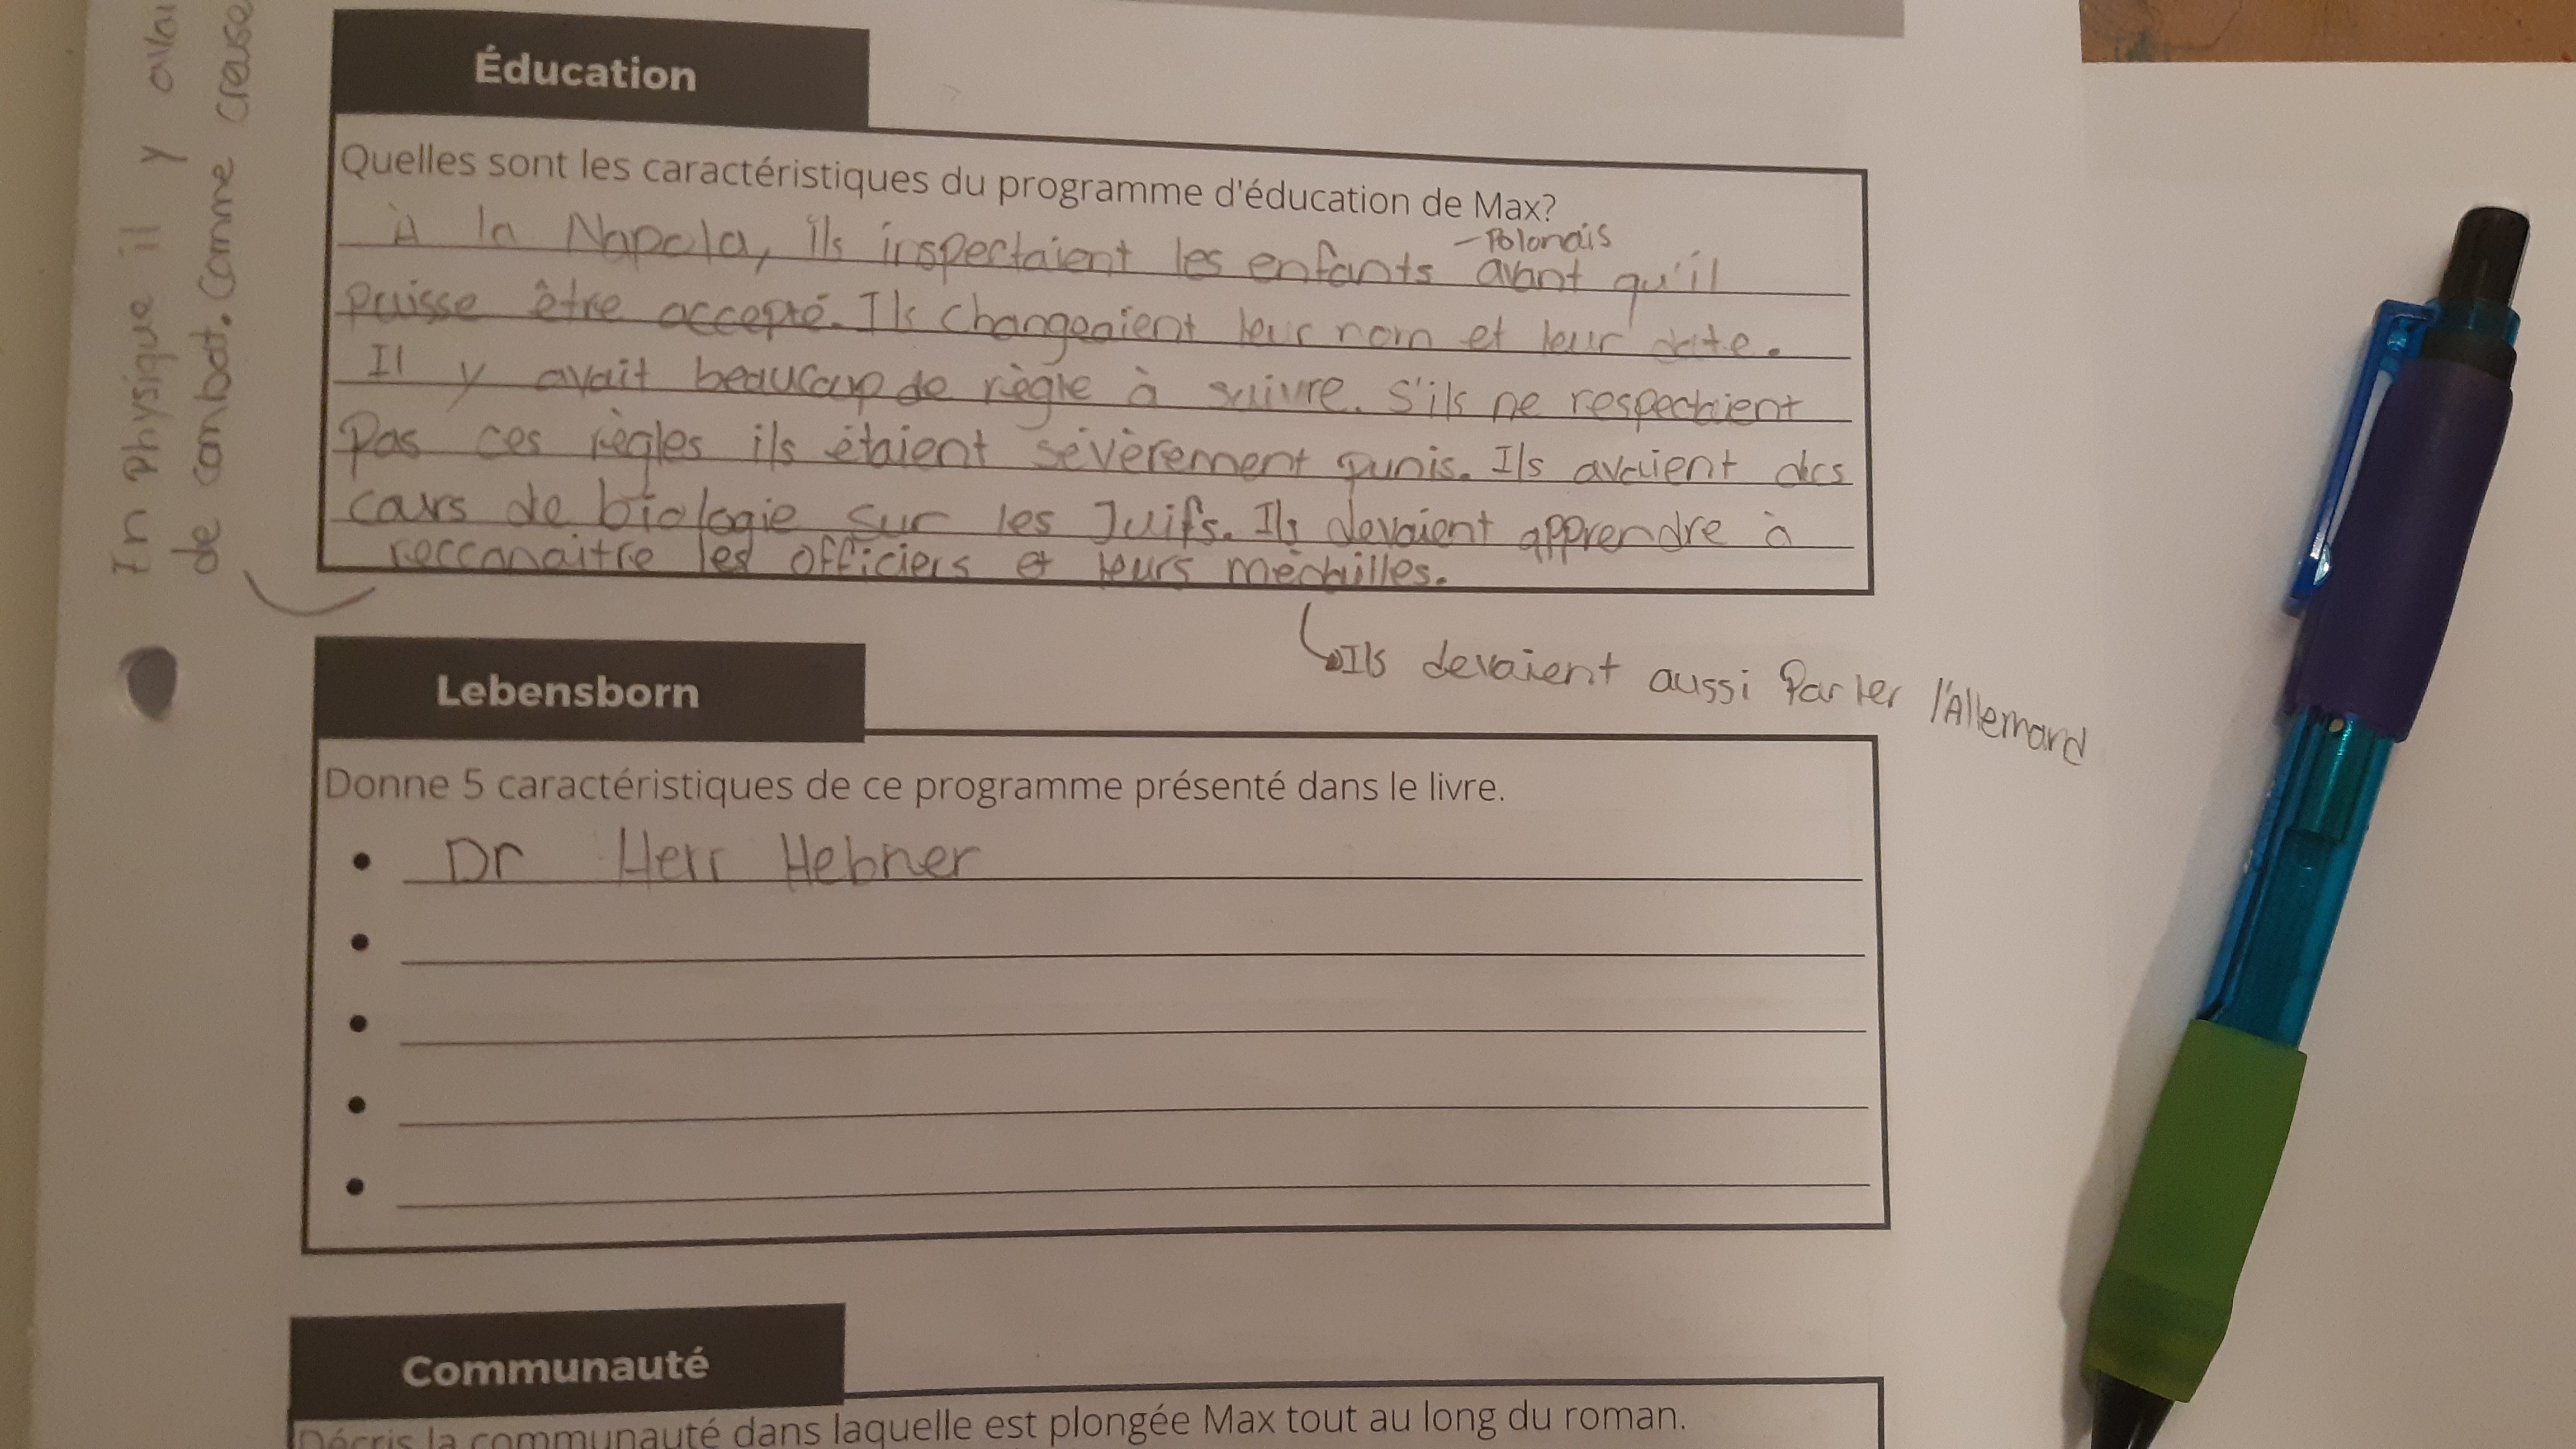 Éducation
Quelles sont les caractéristiques du programme d'éducation de Max?
À la Napola, ils inspectaient les enfants avant qu'il
-Polonais
puisse être accepté. Ils changeaient leur nom et leur date.
Il y avait beaucoup de règle à suivre. S'ils ne respectaient
Pas ces règles ils étaient sévèrement punis. Ils avaient des
cours de biologie sur les Juifs. Ils devaient apprendre à
recconaitre les officiers et leurs médailles.
Ils devaient aussi Parler l'Allemand
En Physique il y avai
de combat. Comme creuse
Lebensborn
Donne 5 caractéristiques de ce programme présenté dans le livre.
• Dr Herr Hebner
•
•
•
•
Communauté
Décris la communauté dans laquelle est plongée Max tout au long du roman.